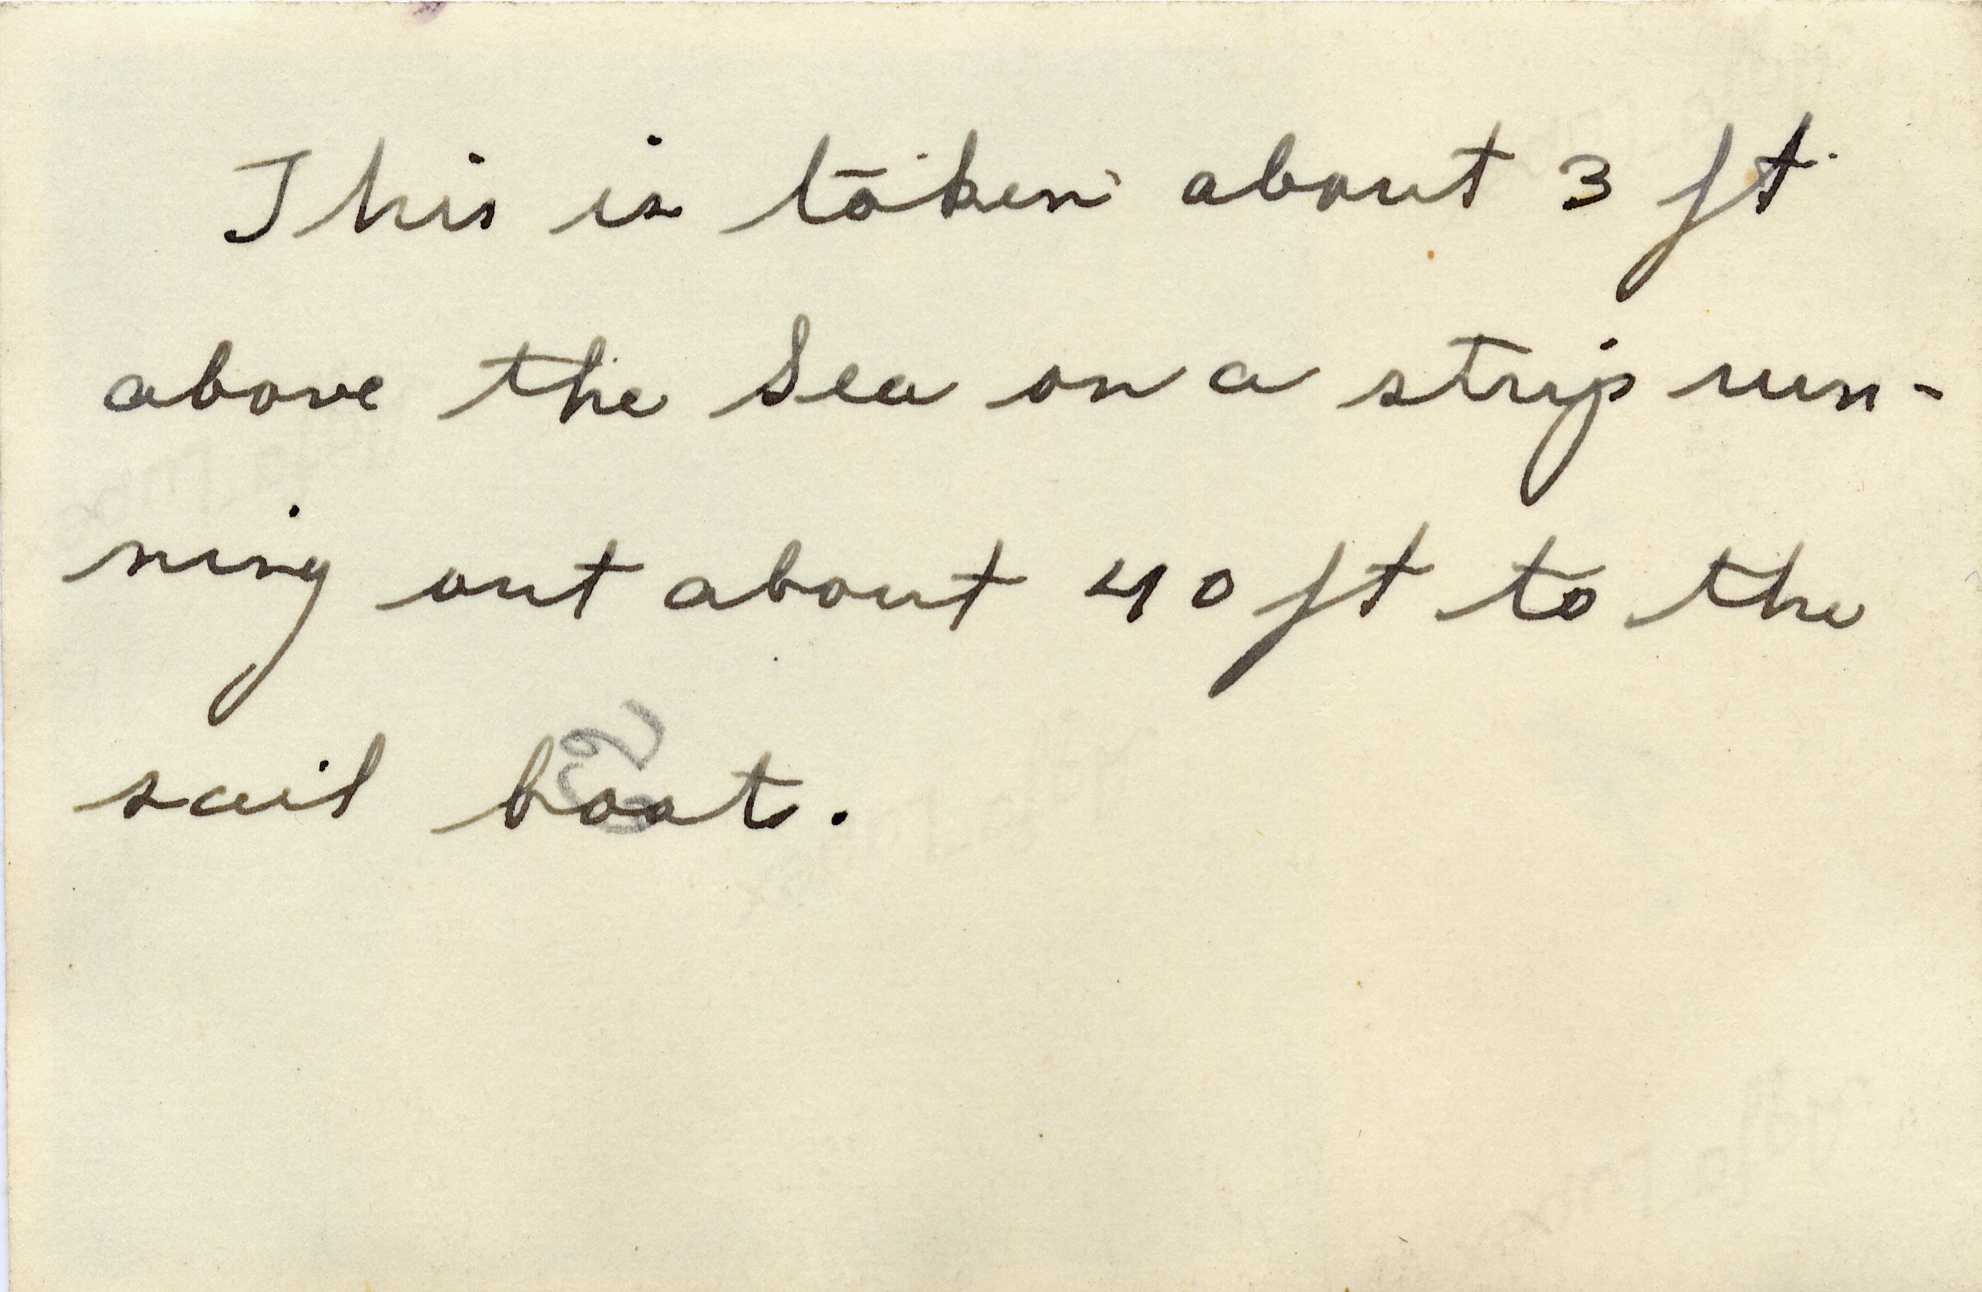 This is taken about 3 ft
above the Sea on a strip run-
ning out about 40 ft to the
sail boat.